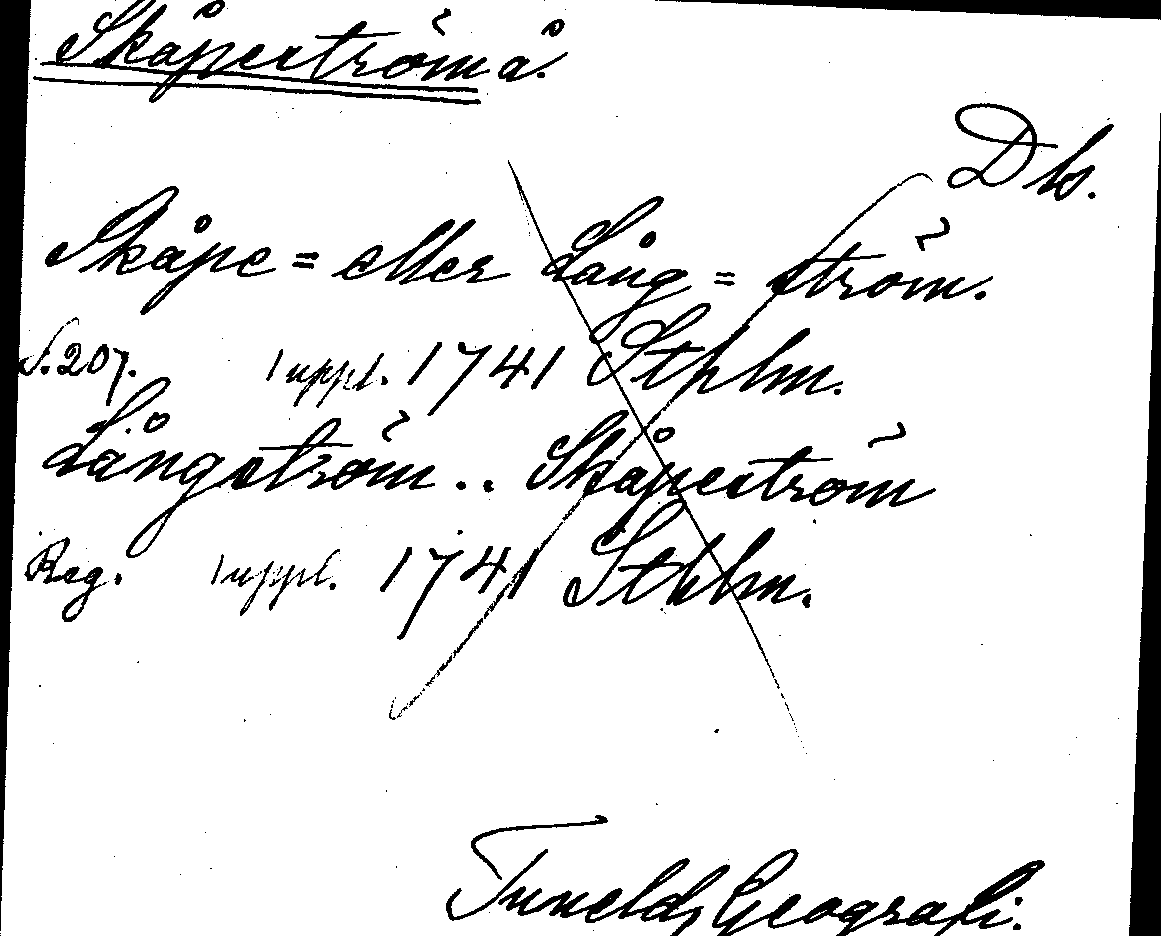 Skåpeström å.
Dls.
Skåpe = eller Lång = ström.
S. 207. 1 uppl. 1741 Sthlm.
Långström.. Skåpeström
Reg. 1 uppl. 1741 Sthlm.
Tunelds Geografi.